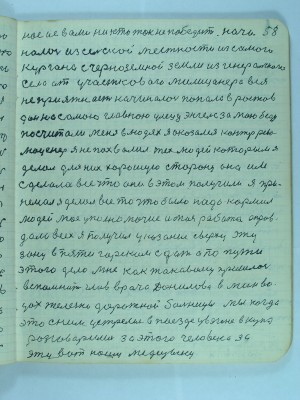 нас и с вами никто так не победит. нача 58
налог из сельской местности из самого
Кургана с черноземной земли из генеральского
село от участкового милиционера вся
неприязнь начиналог попал в ростов
дом на самою главною улицу энгельса мою вещь
посчитали меня в людях я оказался контрреволю
люционер я не похвалил тех людей которым я
делал для них хорошую сторону она им
сделала все что они в этом получили я при
нимал я делал все то что было надо кормил
людей мое условие и моя работа оправ
дала всех я получил указание сверху эту
зону в пяти гаренком сдат а по пути
этого дело мне как таковому пришлось
вспомнить глав врача Данилову в мин во
дах железно дорожной больницы мы когда
это с ним встрелся в поезде увагоне в купе
разговариили за этого человека за
эту вот нашу медицину